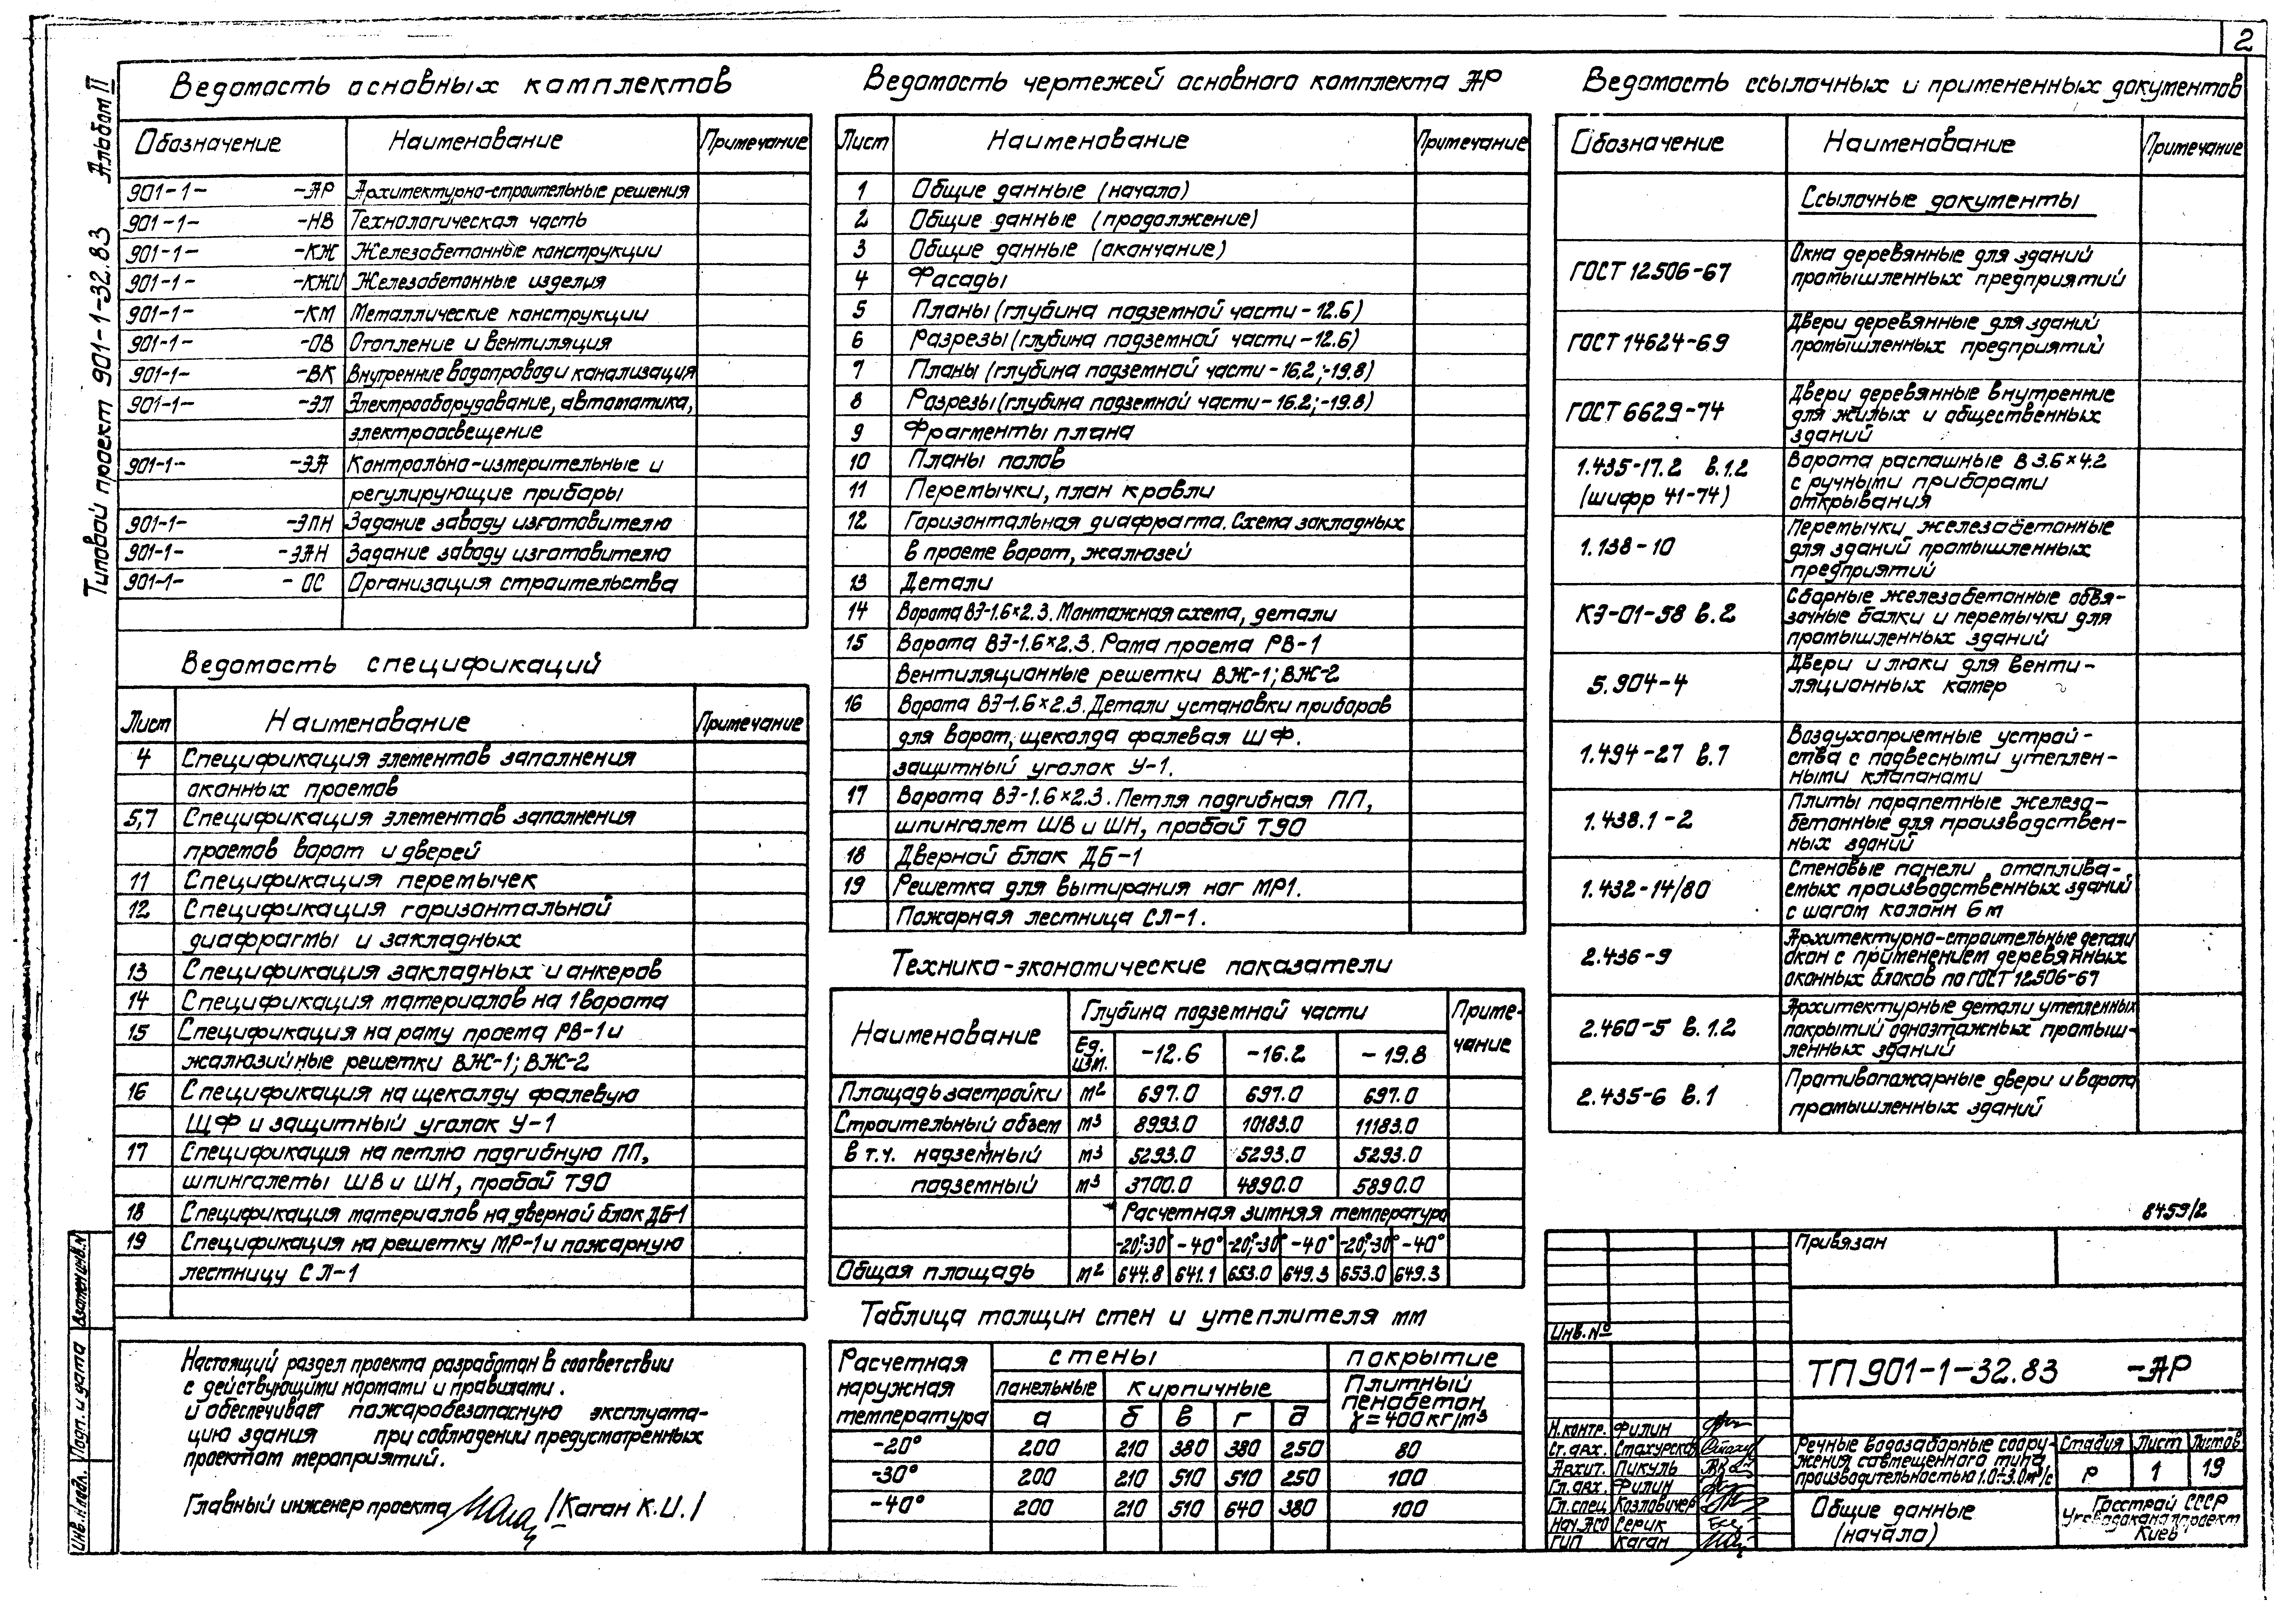 2
Типовой проект 901-1-32.83 Альбом II
Ведомость основных комплектов
Обозначение Наименование Примечание
901-1- -АР Архитектурно-строительные решения
901-1- -НВ Технологическая часть
901-1- -КЖ Железобетонные конструкции
901-1- -КЖИ Железобетонные изделия
901-1- -КМ Металлические конструкции
901-1- -ОВ Отопление и вентиляция
901-1- -ВК Внутренние водопровод и канализация
901-1- -ЭЛ Электрооборудование, автоматика,
электроосвещение
901-1- -ЭА Контрольно-измерительные и
регулирующие приборы
901-1- -ЭЛН Задание заводу изготовителю
901-1- -ЭАН Задание заводу изготовителю
901-1- - ОС Организация строительства
Ведомость спецификаций
Лист Наименование Примечание
4 Спецификация элементов заполнения
оконных проемов
5,7 Спецификация элементов заполнения
проемов ворот и дверей
11 Спецификация перемычек
12 Спецификация горизонтальной
диафрагмы и закладных
13 Спецификация закладных и анкеров
14 Спецификация материалов на 1 ворота
15 Спецификация на раму проема РВ-1 и
жалюзийные решетки ВЖ-1; ВЖ-2
16 Спецификация на щеколду фалевую
ЩФ и защитный уголок У-1
17 Спецификация на петлю подгибную ПП,
шпингалеты ШВ и ШН, пробой Т90
18 Спецификация материалов на дверной блок ДБ-1
19 Спецификация на решетку МР-1 и пожарную
лестницу СЛ-1
Настоящий раздел проекта разработан в соответствии
с действующими нормами и правилами.
и обеспечивает пожаробезопасную эксплуата-
цию здания при соблюдении предусмотренных
проектом мероприятий.
Главный инженер проекта /Каган К.И./
Ведомость чертежей основного комплекта АР
Лист Наименование Примечание
1 Общие данные (начало)
2 Общие данные (продолжение)
3 Общие данные (окончание)
4 Фасады
5 Планы (глубина подземной части -12.6)
6 Разрезы (глубина подземной части -12.6)
7 Планы (глубина подземной части -16.2; -19.8)
8 Разрезы (глубина подземной части -16.2; -19.8)
9 Фрагменты плана
10 Планы полов
11 Перемычки, план кровли
12 Горизонтальная диафрагма. Схема закладных
в проеме ворот, жалюзей
13 Детали
14 Ворота ВЭ-1.6×2.3. Монтажная схема, детали
15 Ворота ВЭ-1.6×2.3. Рама проема РВ-1
Вентиляционные решетки ВЖ-1; ВЖ-2
16 Ворота ВЭ-1.6×2.3. Детали установки приборов
для ворот, щеколда фалевая ШФ.
защитный уголок У-1.
17 Ворота ВЭ-1.6×2.3. Петля подгибная ПП,
шпингалет ШВ и ШН, пробой Т90
18 Дверной блок ДБ-1
19 Решетка для вытирания ног МР1.
Пожарная лестница СЛ-1.
Технико-экономические показатели
Наименование Глубина подземной части Приме-
чание
Ед. изм. -12.6 -16.2 -19.8
Площадь застройки м2 697.0 697.0 697.0
Строительный объем м3 8993.0 10183.0 11183.0
в т.ч. надземный м3 5293.0 5293.0 5293.0
подземный м3 3700.0 4890.0 5890.0
Расчетная зимняя температура
-20°;-30° -40° -20°;-30° -40° -20°;-30° -40°
Общая площадь м2 644.8 641.1 653.0 649.3 653.0 649.3
Таблица толщин стен и утеплителя мм
Расчетная наружная температура стены покрытие
панельные кирпичные Плитный пенобетон γ=400кг/м3
а б в г д
-20° 200 210 380 380 250 80
-30° 200 210 510 510 250 100
-40° 200 210 510 640 380 100
Ведомость ссылочных и примененных документов
Обозначение Наименование Примечание
Ссылочные документы
ГОСТ 12506-67 Окна деревянные для зданий
промышленных предприятий
ГОСТ 14624-69 Двери деревянные для зданий
промышленных предприятий
ГОСТ 6629-74 Двери деревянные внутренние
для жилых и общественных
зданий
1.435-17.2 в.1.2 Ворота распашные В 3.6×4.2
(шифр 41-74) с ручными приборами
открывания
1.138-10 Перемычки железобетонные
для зданий промышленных
предприятий
КЭ-01-58 в.2 Сборные железобетонные обвя-
зочные балки и перемычки для
промышленных зданий
5.904-4 Двери и люки для венти-
ляционных камер
1.494-27 в.7 Воздухоприемные устрой-
ства с подвесными утеплен-
ными клапанами
1.438.1-2 Плиты парапетные железо-
бетонные для производствен-
ных зданий
1.432-14/80 Стеновые панели отаплива-
емых производственных зданий
с шагом колонн 6м
2.436-9 Архитектурно-строительные детали
окон с применением деревянных
оконных блоков по ГОСТ 12506-67
2.460-5 в.1.2 Архитектурные детали утепленных
покрытий одноэтажных промыш-
ленных зданий
2.435-6 в.1 Противопожарные двери и ворота
промышленных зданий
8459/2
Привязан
Инв. №
ТП 901-1-32.83 -АР
Н.контр. Филин
Ст.арх. Стахурская
Архит. Пикуль
Гл.арх. Филин
Гл.спец. Козловичер
Нач.АСО Серик
ГИП Каган
Речные водозаборные соору-
жения совмещенного типа
производительностью 1.0÷3.0м3/с
Стадия Лист Листов
Р 1 19
Общие данные
(начало)
Госстрой СССР
Укрводоканалпроект
Киев
Инв.Н подл. Подп. и дата Взамен инв.N